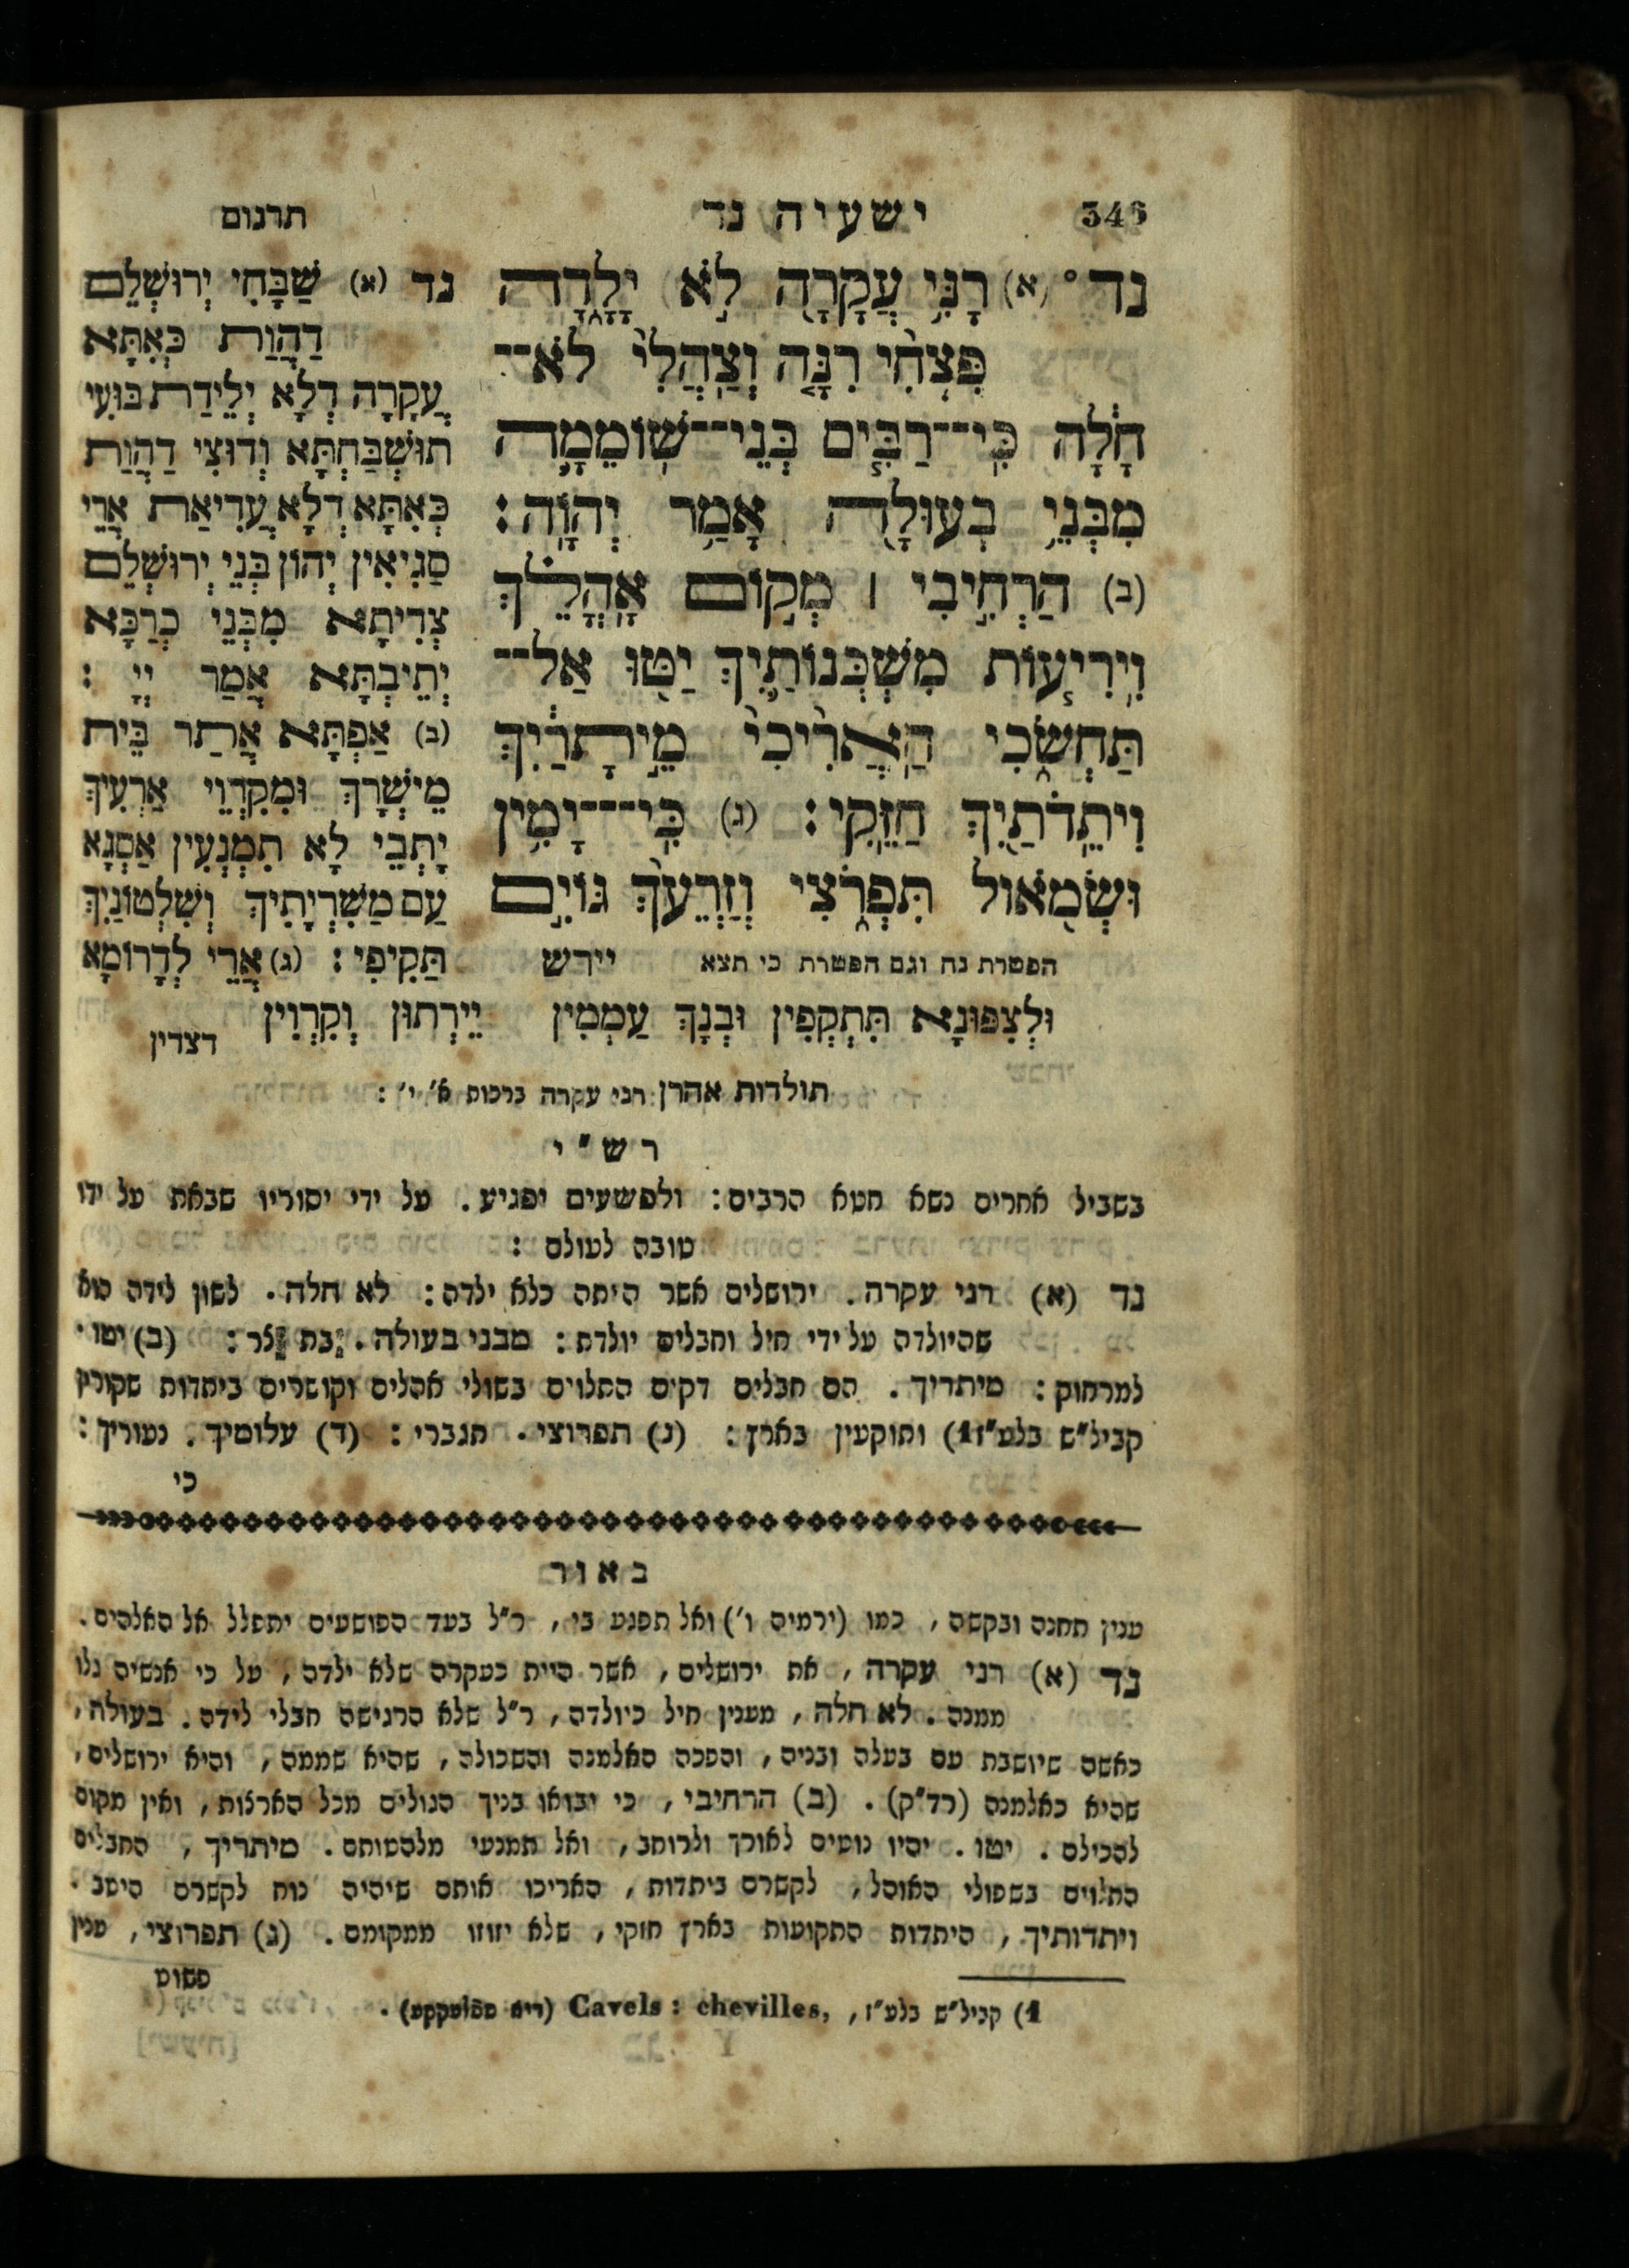 346
ישעיה נד
תרגום
נד° (א) רָנִּ֥י עֲקָרָ֖ה לֹ֣א יָלָ֑דָה
פִּצְחִ֨י רִנָּ֤ה וְצַֽהֲלִי֙ לֹא־
חָ֔לָה כִּֽי־רַבִּ֧ים בְּנֵי־שֽׁוֹמֵמָ֛ה
מִבְּנֵ֥י בְעוּלָ֖ה אָמַ֥ר יְהוָֽה׃
(ב) הַרְחִ֣יבִי ׀ מְק֣וֹם אָֽהֳלֵ֗ךְ
וִֽירִיע֧וֹת מִשְׁכְּנוֹתַ֛יִךְ יַטּ֖וּ אַל־
תַּחְשֹׂ֑כִי הַֽאֲרִ֨יכִי֙ מֵֽיתָרַ֔יִךְ
וִיתֵֽדֹתַ֖יִךְ חַזֵּֽקִי׃ (ג) כִּֽי־יָמִ֥ין
וּשְׂמֹ֖אול תִּפְרֹ֑צִי וְזַרְעֵךְ֙ גּוֹיִ֣ם
הפטרת נח וגם הפטרת כי תצא יירש
נד (א) שַׁבָּחִי יְרוּשְׁלֵם
דַהֲוַת כְּאִתָּא
עֲקָרָה דְלָא יְלֵידַת בּוּעִי
תוּשְׁבַּחְתָּא וְדוּצִי דַהֲוַת
כְּאִתָּא דְלָא עֲדִיאַת אֲרֵי
סַגִיאִין יְהוֹן בְּנֵי יְרוּשְׁלֵם
צְדִיתָא מִבְּנֵי כְרַכָּא
יְתֵיבְתָּא אֲמַר יְיָ :
(ב) אַפְתָּא אֲתַר בֵּית
מֵישְׁרָךְ וּמִקִרְוֵי אַרְעִיךְ
יָתְבֵי לָא תִמְנְעִין אַסְגָא
עַם מַשִׁרְיָתִיךְ וְשִׁלְטוֹנַיִךְ
תַּקִיפִי : (ג) אֲרֵי לְדָרוֹמָא
וּלְצִפּוּנָא תִּתְקְפִין וּבְנָךְ עַמְמִין יֵירְתוּן וְקִרְוִין
דצדין
תולדות אהרן רני עקרה ברכות א׳ י׳ :
רש״י
בשביל אחרים נשא חטא הרבים : ולפשעים יפגיע . על ידי יסוריו שבאת על ידו
טובה לעולם :
נד (א) רני עקרה . ירושלים אשר היתה כלא ילדה : לא חלה . לשון לידה הוא
שהיולדת על ידי חיל וחבלים יולדת : מבני בעולה . בת : (ב) יטו .
למרחוק : מיתריך . הם חבלים דקים התלוים בשולי אהלים וקושרים ביתדות שקורין
קביל״ש בלע״ז1) ותוקעין בארץ : (ג) תפרוצי . תגברי : (ד) עלומיך . נעוריך :
כי
באור
ענין תחנה ובקשה , כמו (ירמיה ו׳) ואל תפגע בי , ר״ל בעד הפושעים יתפלל אל האלהים .
נד (א) רני עקרה , את ירושלים , אשר היית כעקרה שלא ילדה , על כי אנשים גלו
ממנה . לא חלה , מענין חיל כיולדה , ר״ל שלא הרגישה חבלי לידה . בעולה ,
כאשה שיושבת עם בעלה ובניה , והפכה האלמנה והשכולה , שהיא שממה , והיא ירושלים ,
שהיא כאלמנה (רד״ק) . (ב) הרחיבי , כי יבואו בניך הגולים מכל הארצות , ואין מקום
להכילם . יטו . יהיו נוטים לאורך ולרוחב , ואל תמנעי מלהטותם . מיתריך , החבלים
התלוים בשפולי האוהל , לקשרם ביתדות , האריכו אותם שיהיה כח לקשרם היטב .
ויתדותיך , היתדות התקועות בארץ חזקי , שלא יזוזו ממקומם . (ג) תפרוצי , ענין
פשוט
1) קביל״ש בלע״ז , Cavels : chevilles, .